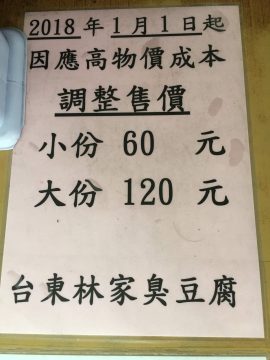 2018 年 1 月 1 日起
因應高物價成本
調整售價
小份 60 元
大份 120 元
台東林家臭豆腐